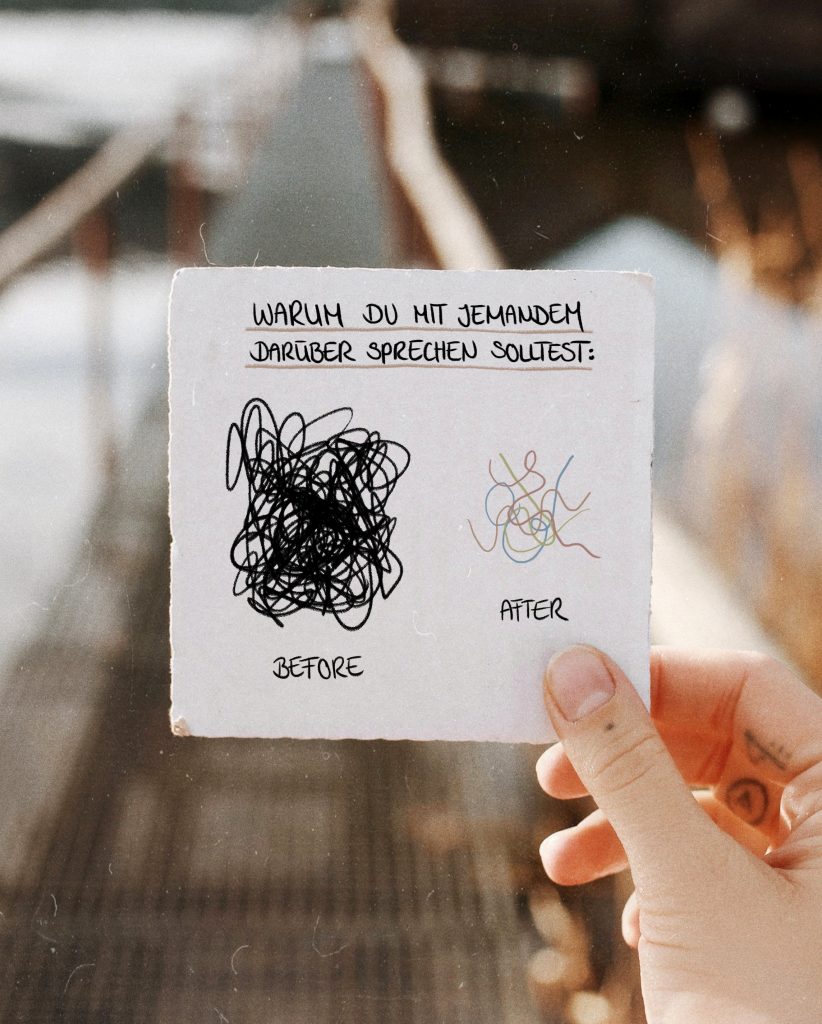 WARUM DU MIT JEMANDEM
DARÜBER SPRECHEN SOLLTEST:
AFTER
BEFORE